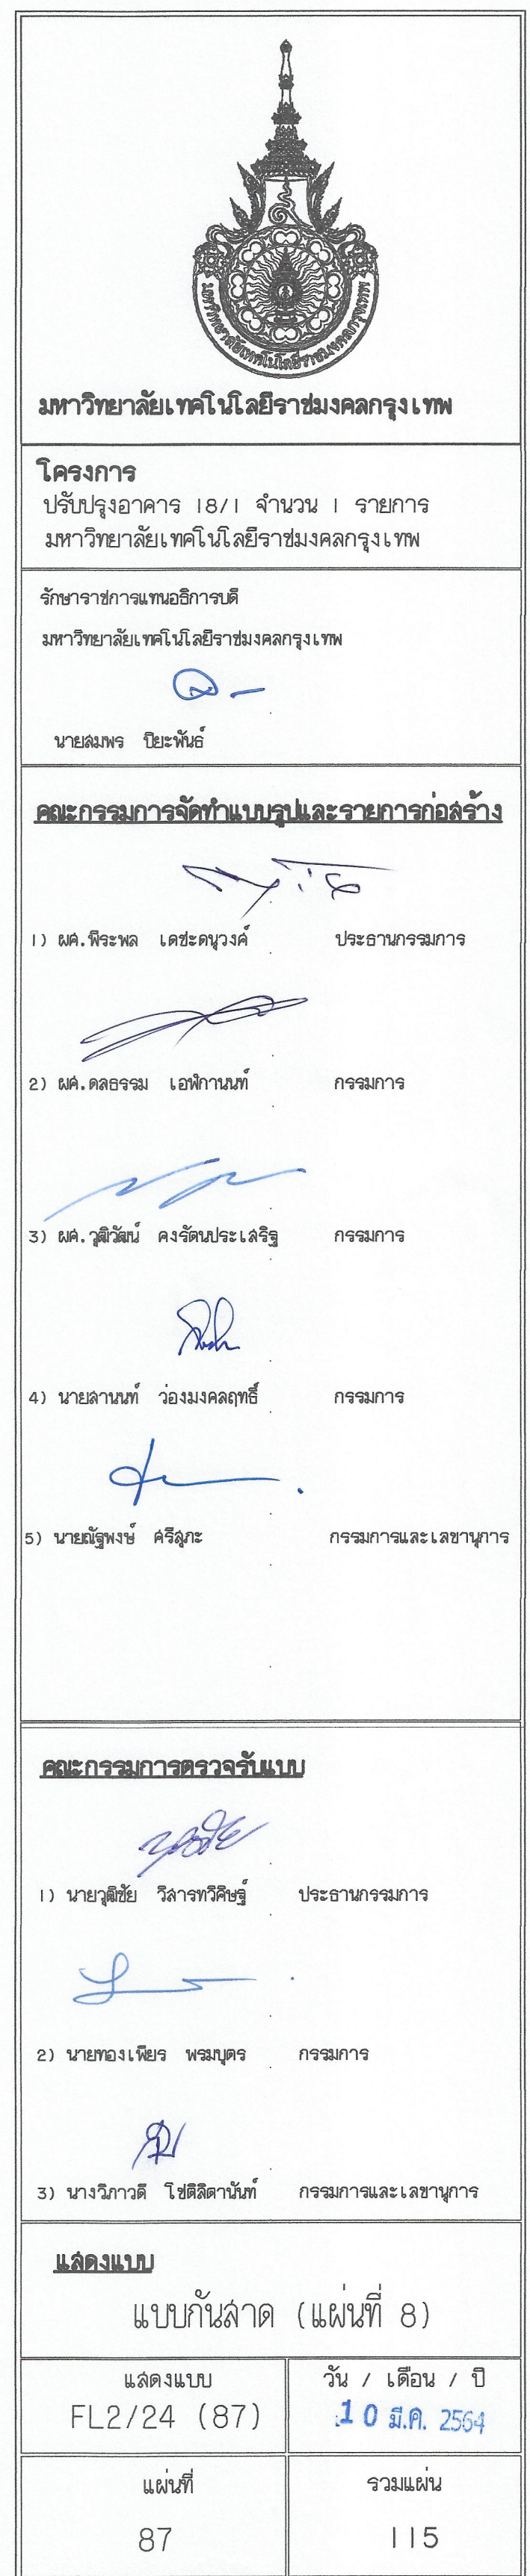 มหาวิทยาลัยเทคโนโลยีราชมงคลกรุงเทพ
มหาวิทยาลัยเทคโนโลยีราชมงคลกรุงเทพ
โครงการ
ปรับปรุงอาคาร 18/1 จำนวน 1 รายการ
มหาวิทยาลัยเทคโนโลยีราชมงคลกรุงเทพ
รักษาราชการแทนอธิการบดี
มหาวิทยาลัยเทคโนโลยีราชมงคลกรุงเทพ
นายสมพร ปิยะพันธ์
คณะกรรมการจัดทำแบบรูปและรายการก่อสร้าง
1) ผศ.พีระพล เดชะดนูวงค์ ประธานกรรมการ
2) ผศ.ดลธรรม เอฬกานนท์ กรรมการ
3) ผศ.วุฒิวัฒน์ คงรัตนประเสริฐ กรรมการ
4) นายสานนท์ ว่องมงคลฤทธิ์ กรรมการ
5) นายณัฐพงษ์ ศรีสุภะ กรรมการและเลขานุการ
คณะกรรมการตรวจรับแบบ
1) นายวุฒิชัย วิสารทวิศิษฐ์ ประธานกรรมการ
2) นายทองเพียร พรมบุตร กรรมการ
3) นางวิภาวดี โชติสิตานันท์ กรรมการและเลขานุการ
แสดงแบบ
แบบกันสาด (แผ่นที่ 8)
แสดงแบบ
FL2/24 (87)
วัน / เดือน / ปี
10 มี.ค. 2564
แผ่นที่
87
รวมแผ่น
115